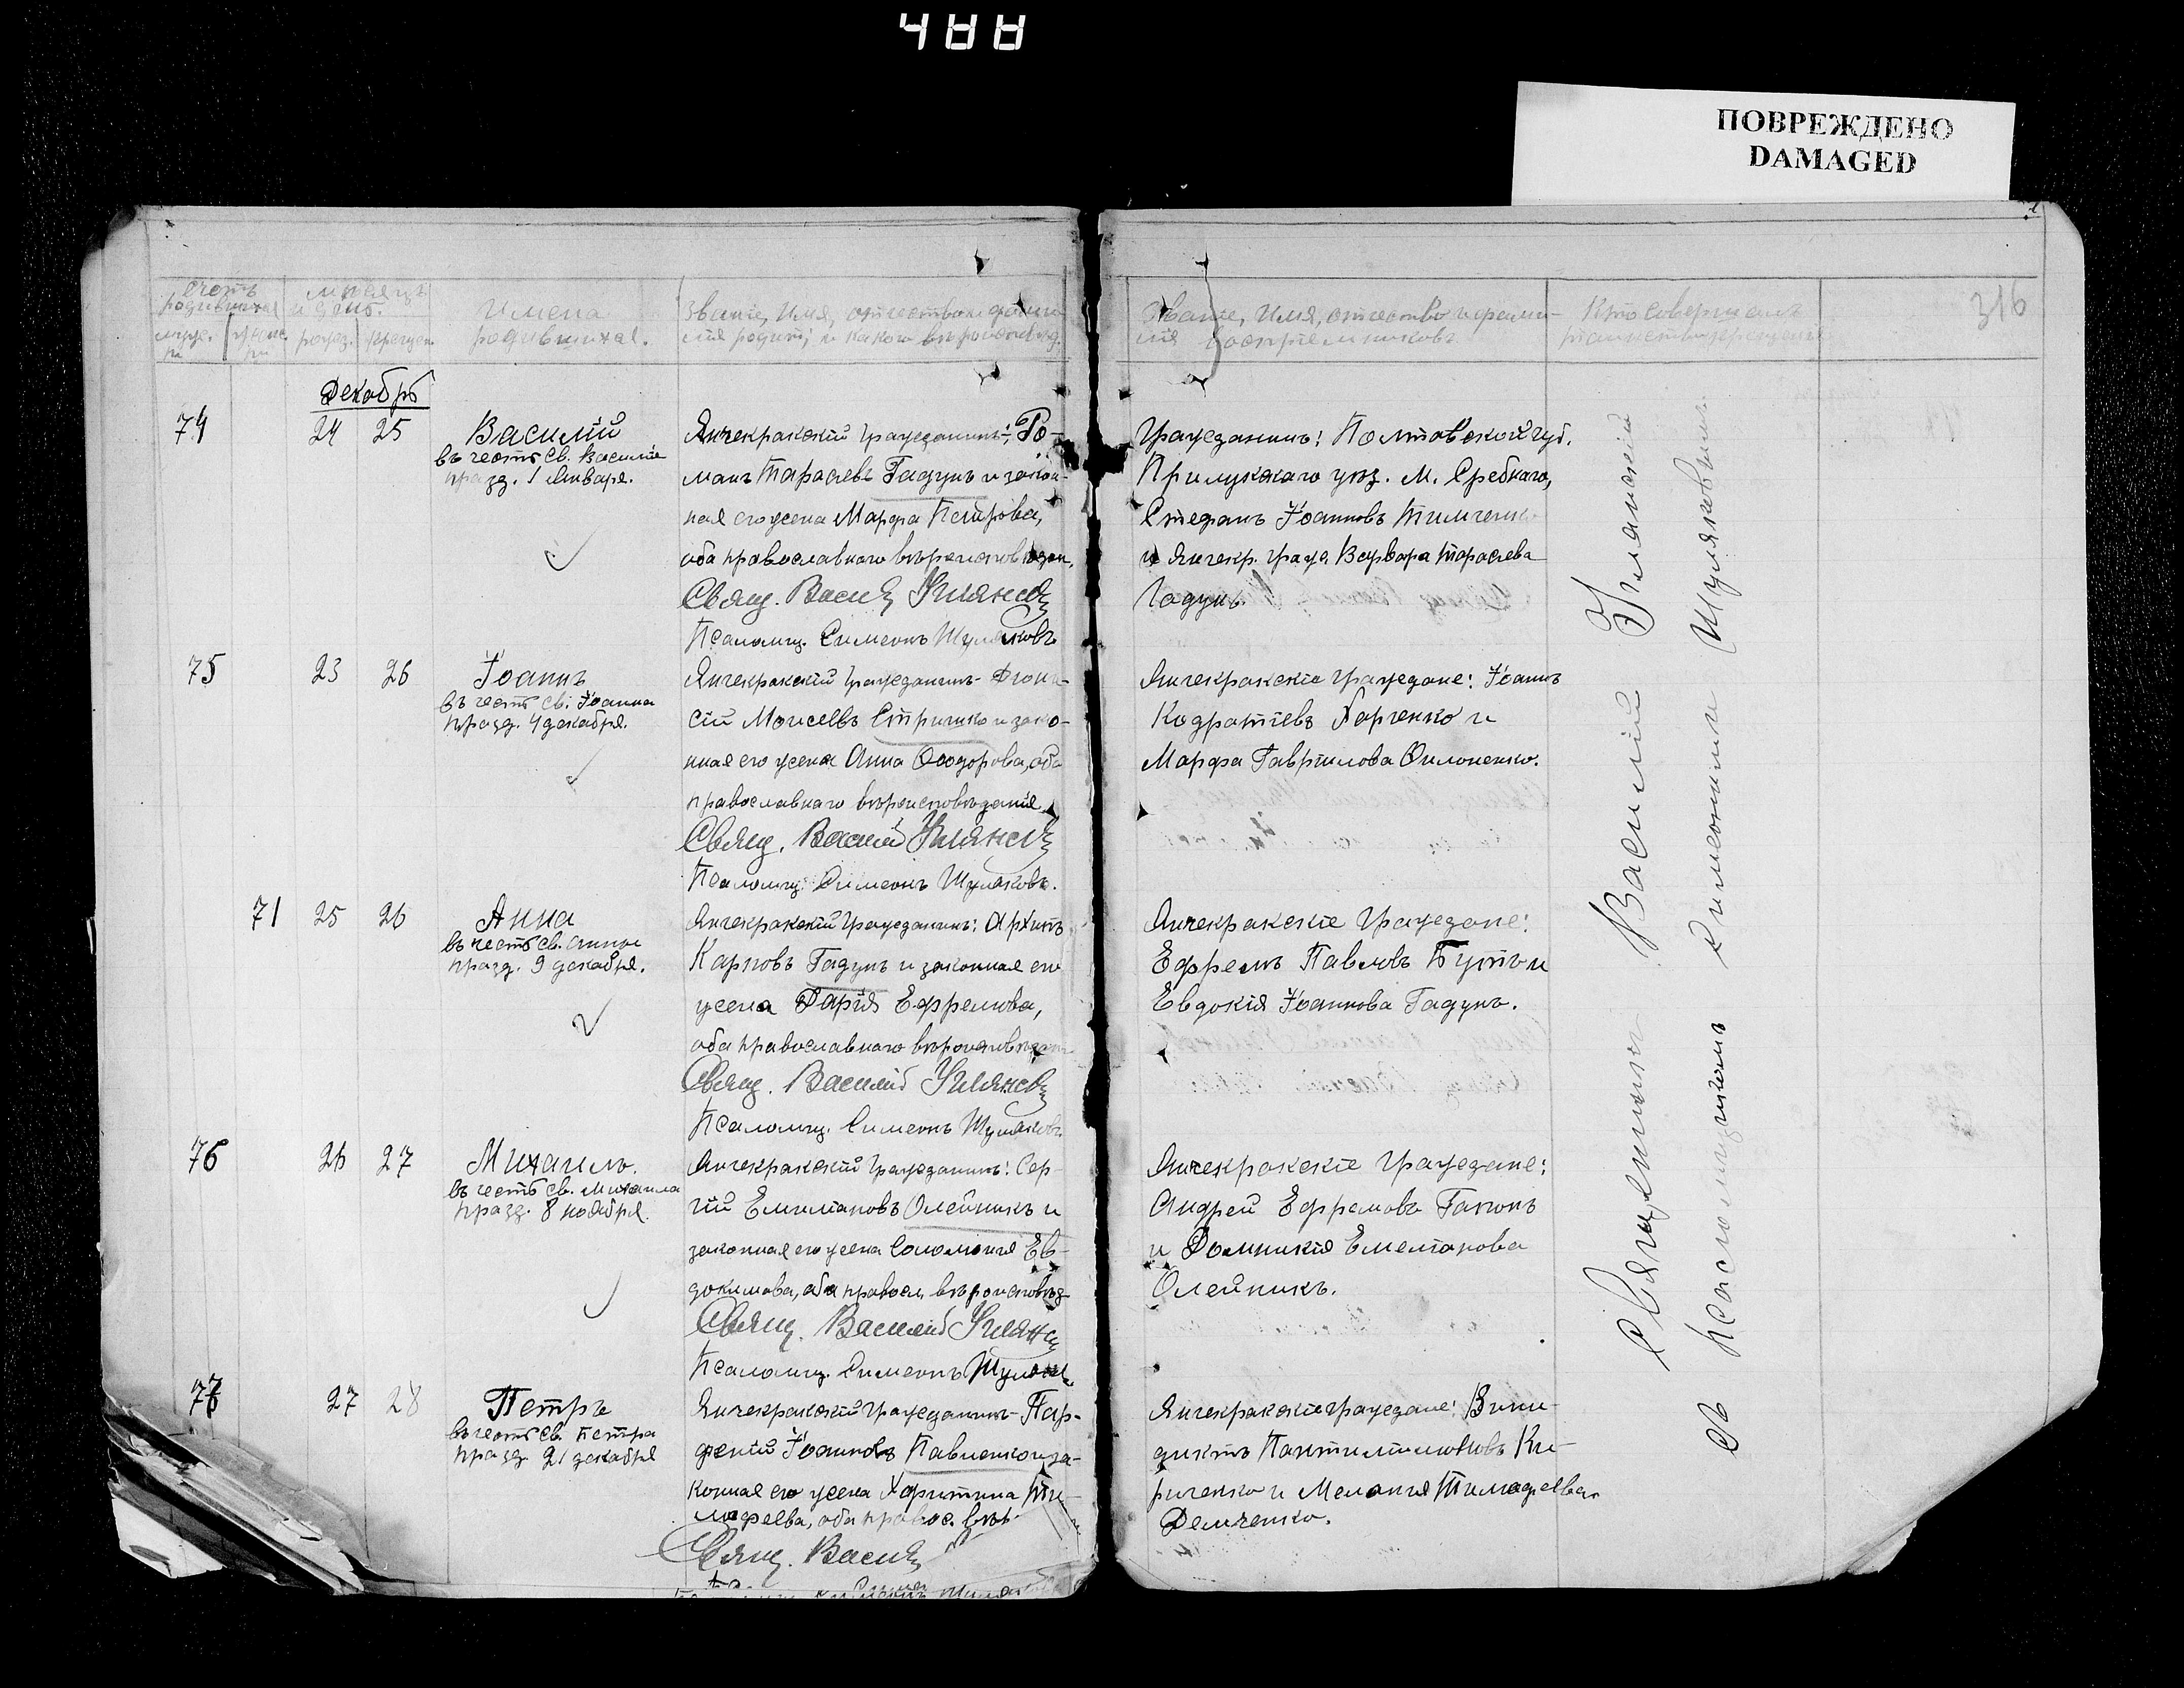 488
ПОВРЕЖДЕНО
DAMAGED
316
Счетъ родившихся
муже.
жен.
мѣсяцъ и день.
рожд.
крещен.
Имена родившихся.
Званіе, Имя, отчество и фами-
лія родит; и какого вѣроисповѣд.
Званіе, Имя, отчество и фами-
лія воспріемниковъ.
Кто совершалъ
таинство крещенія
Декабрь
74 24 25
Василій
въ честь св. Василія
празд. 1 Января.
Янчекракскій гражданинъ: Ро-
манъ Тарасіевъ Гадунъ и закон-
ная его жена Марфа Петрова,
оба православнаго вѣроисповѣдан.
Свящ. Василій
Псаломщ. Симеонъ Шуляковъ
Гражданинъ: Полтавской губ.
Прилукскаго уѣз. М. Сребнаго,
Стефанъ Іоанновъ Тимченко
и Янчекр. гражд. Варвара Тарасіева
Гадунъ.
75 23 26
Іоаннъ
въ честь св. Іоанна
празд. 4 декабря.
Янчекракскій гражданинъ- Діони-
сій Моисеевъ Стрижко и зако-
нная его жена Анна Ѳеодорова, оба
православнаго вѣроисповѣданія
Свящ. Василій
Псаломщ. Симеонъ Шуляковъ.
Янчекракскіе граждане: Іоаннъ
Кодратіевъ Харченко и
Марфа Гавріилова Филоненко.
71 25 26
Анна
въ честь св. Анны
празд. 9 декабря.
Янчекракскій гражданинъ: Архипъ
Карповъ Гадунъ и законная его
жена Дарія Ефремова,
оба православнаго вѣроисповѣдан
Свящ. Василій
Псаломщ. Симеонъ Шуляковъ
Янчекракскіе граждане:
Ефремъ Павловъ Бутъ и
Евдокія Іоаннова Гадунъ.
76 26 27
Михаилъ.
въ честь св. Михаила
празд. 8 ноября.
Янчекракскій гражданинъ: Сер-
гій Емиліановъ Олейникъ и
законная его жена Соломонія Ев-
докимова, оба правосл. вѣроисповѣд-
Свящ. Василій
Псаломщ. Симеонъ Шуляк
Янчекракскіе граждане:
Андрей Ефремовъ Гапонъ
и Домникія Емеліанова
Олейникъ.
77 27 28
Петръ
въ честь св. Петра
празд. 21 декабря
Янчекракскій гражданинъ- Пар-
феній Іоанновъ Павленко и за-
конная его жена Харитина Ти-
мофеева, оба правос. вѣр
Свящ. Василій
Янчекракскіе граждане: Вини-
диктъ Пантилимоновъ Ки-
риченко и Меланія Тимофеева
Демченко.
Священникъ Василій
Съ псаломщикомъ Симеономъ Шуляковымъ